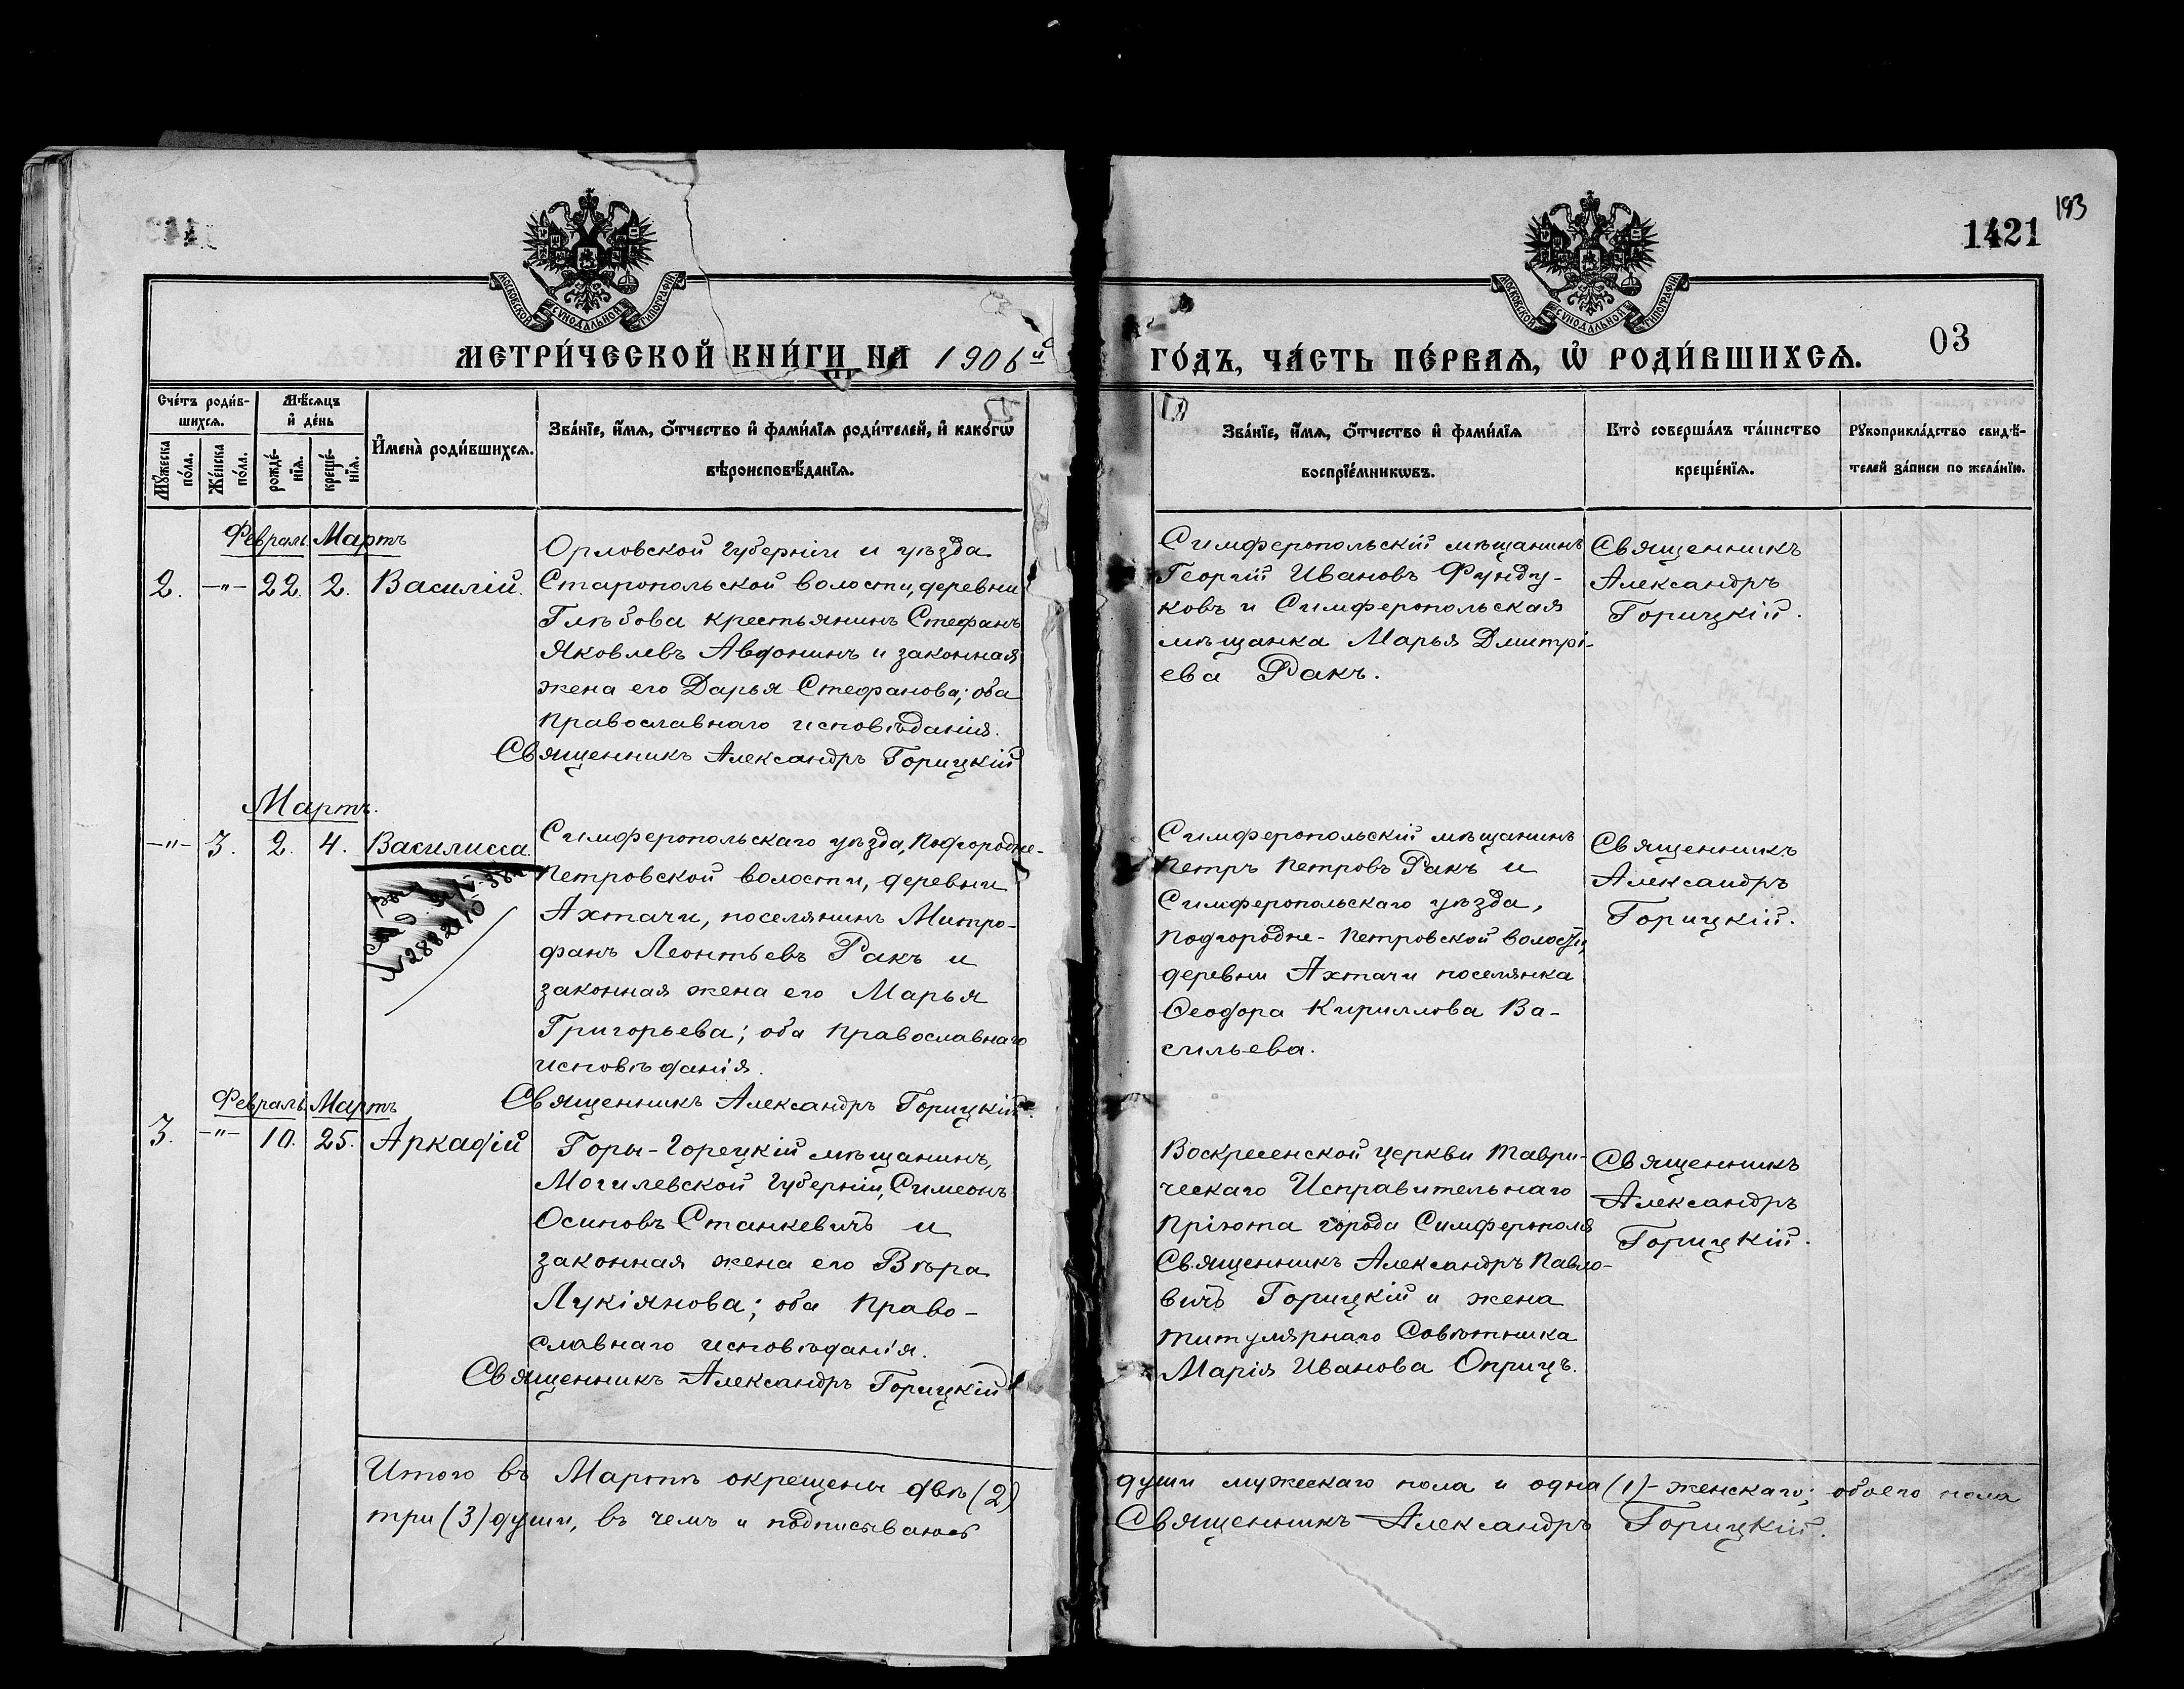 193
1421
МОСКОВСКОЙ СѴНОДАЛЬНОЙ ТИПОГРАФІИ
МОСКОВСКОЙ СѴНОДАЛЬНОЙ ТИПОГРАФІИ
03
МЕТРИ́ЧЕСКОЙ КНИ́ГИ НА 1906й ГО́ДЪ, ЧА́СТЬ ПЕ́РВАѦ, Ѡ҆ РОДИ́ВШИХСѦ.
Сче́тъ роди́в-
шихсѧ.
Мꙋ́жеска по́ла.
Же́нска по́ла.
Мѣ́сѧцъ
и҆ де́нь
рожде́-нїѧ.
креще́-нїѧ.
И҆мена̀ роди́вшихсѧ.
Зва́нїе, и҆́мѧ, ѻ҆́тчество и҆ фами́лїѧ роди́телей, и҆ како́гѡ
вѣроисповѣ́данїѧ.
Зва́нїе, и҆́мѧ, ѻ҆́тчество и҆ фами́лїѧ
воспрїе́мникѡвъ.
Кто̀ соверша́лъ та́инство
креще́нїѧ.
Рꙋкоприкла́дство свидѣ́-
телей за́писи по жела́нїю.
Февраль. Мартъ
2. -"- 22. 2. Василій.
Орловской губерніи и уѣзда
Старопольской волости, деревни
Глѣбова крестьянинъ Стефанъ
Яковлевъ Авдонинъ и законная
жена его Дарья Стефанова; оба
православнаго исповѣданія.
Священникъ Александръ Горицкій
Симферопольскій мѣщанинъ
Георгій Ивановъ Фунду-
ковъ и Симферопольская
мѣщанка Марья Дмитрі-
ева Ракъ.
Священникъ
Александръ
Горицкій.
Мартъ.
-"- 3. 2. 4. Василисса.
Симферопольскаго уѣзда, Подгородне-
Петровской волости, деревни
Ахтачи, поселянинъ Митро-
фанъ Леонтьевъ Ракъ и
законная жена его Марья
Григорьева; оба православнаго
исповѣданія.
Священникъ Александръ Горицкій.
Симферопольскій мѣщанинъ
Петръ Петровъ Ракъ и
Симферопольскаго уѣзда,
Подгородне-Петровской волости,
деревни Ахтачи поселянка
Ѳеодора Кириллова Ва-
сильева.
Священникъ
Александръ
Горицкій.
Февраль. Мартъ
3. -"- 10. 25. Аркадій
Горы-Горецкій мѣщанинъ,
Могилевской губерніи, Симеонъ
Осиповъ Станкевичъ и
законная жена его Вѣра
Лукіянова; оба право-
славнаго исповѣданія.
Священникъ Александръ Горицкій
Воскресенской церкви Таври-
ческаго Исправительнаго
Пріюта города Симферополя
Священникъ Александръ Павло-
вичъ Горицкій и жена
титулярнаго Совѣтника
Марія Иванова Оприцъ.
Священникъ
Александръ
Горицкій.
Итого въ Мартѣ окрещены двѣ (2) души мужескаго пола и одна (1)-женскаго; обоего пола
три (3) души, въ чемъ и подписываюсь Священникъ Александръ Горицкій.